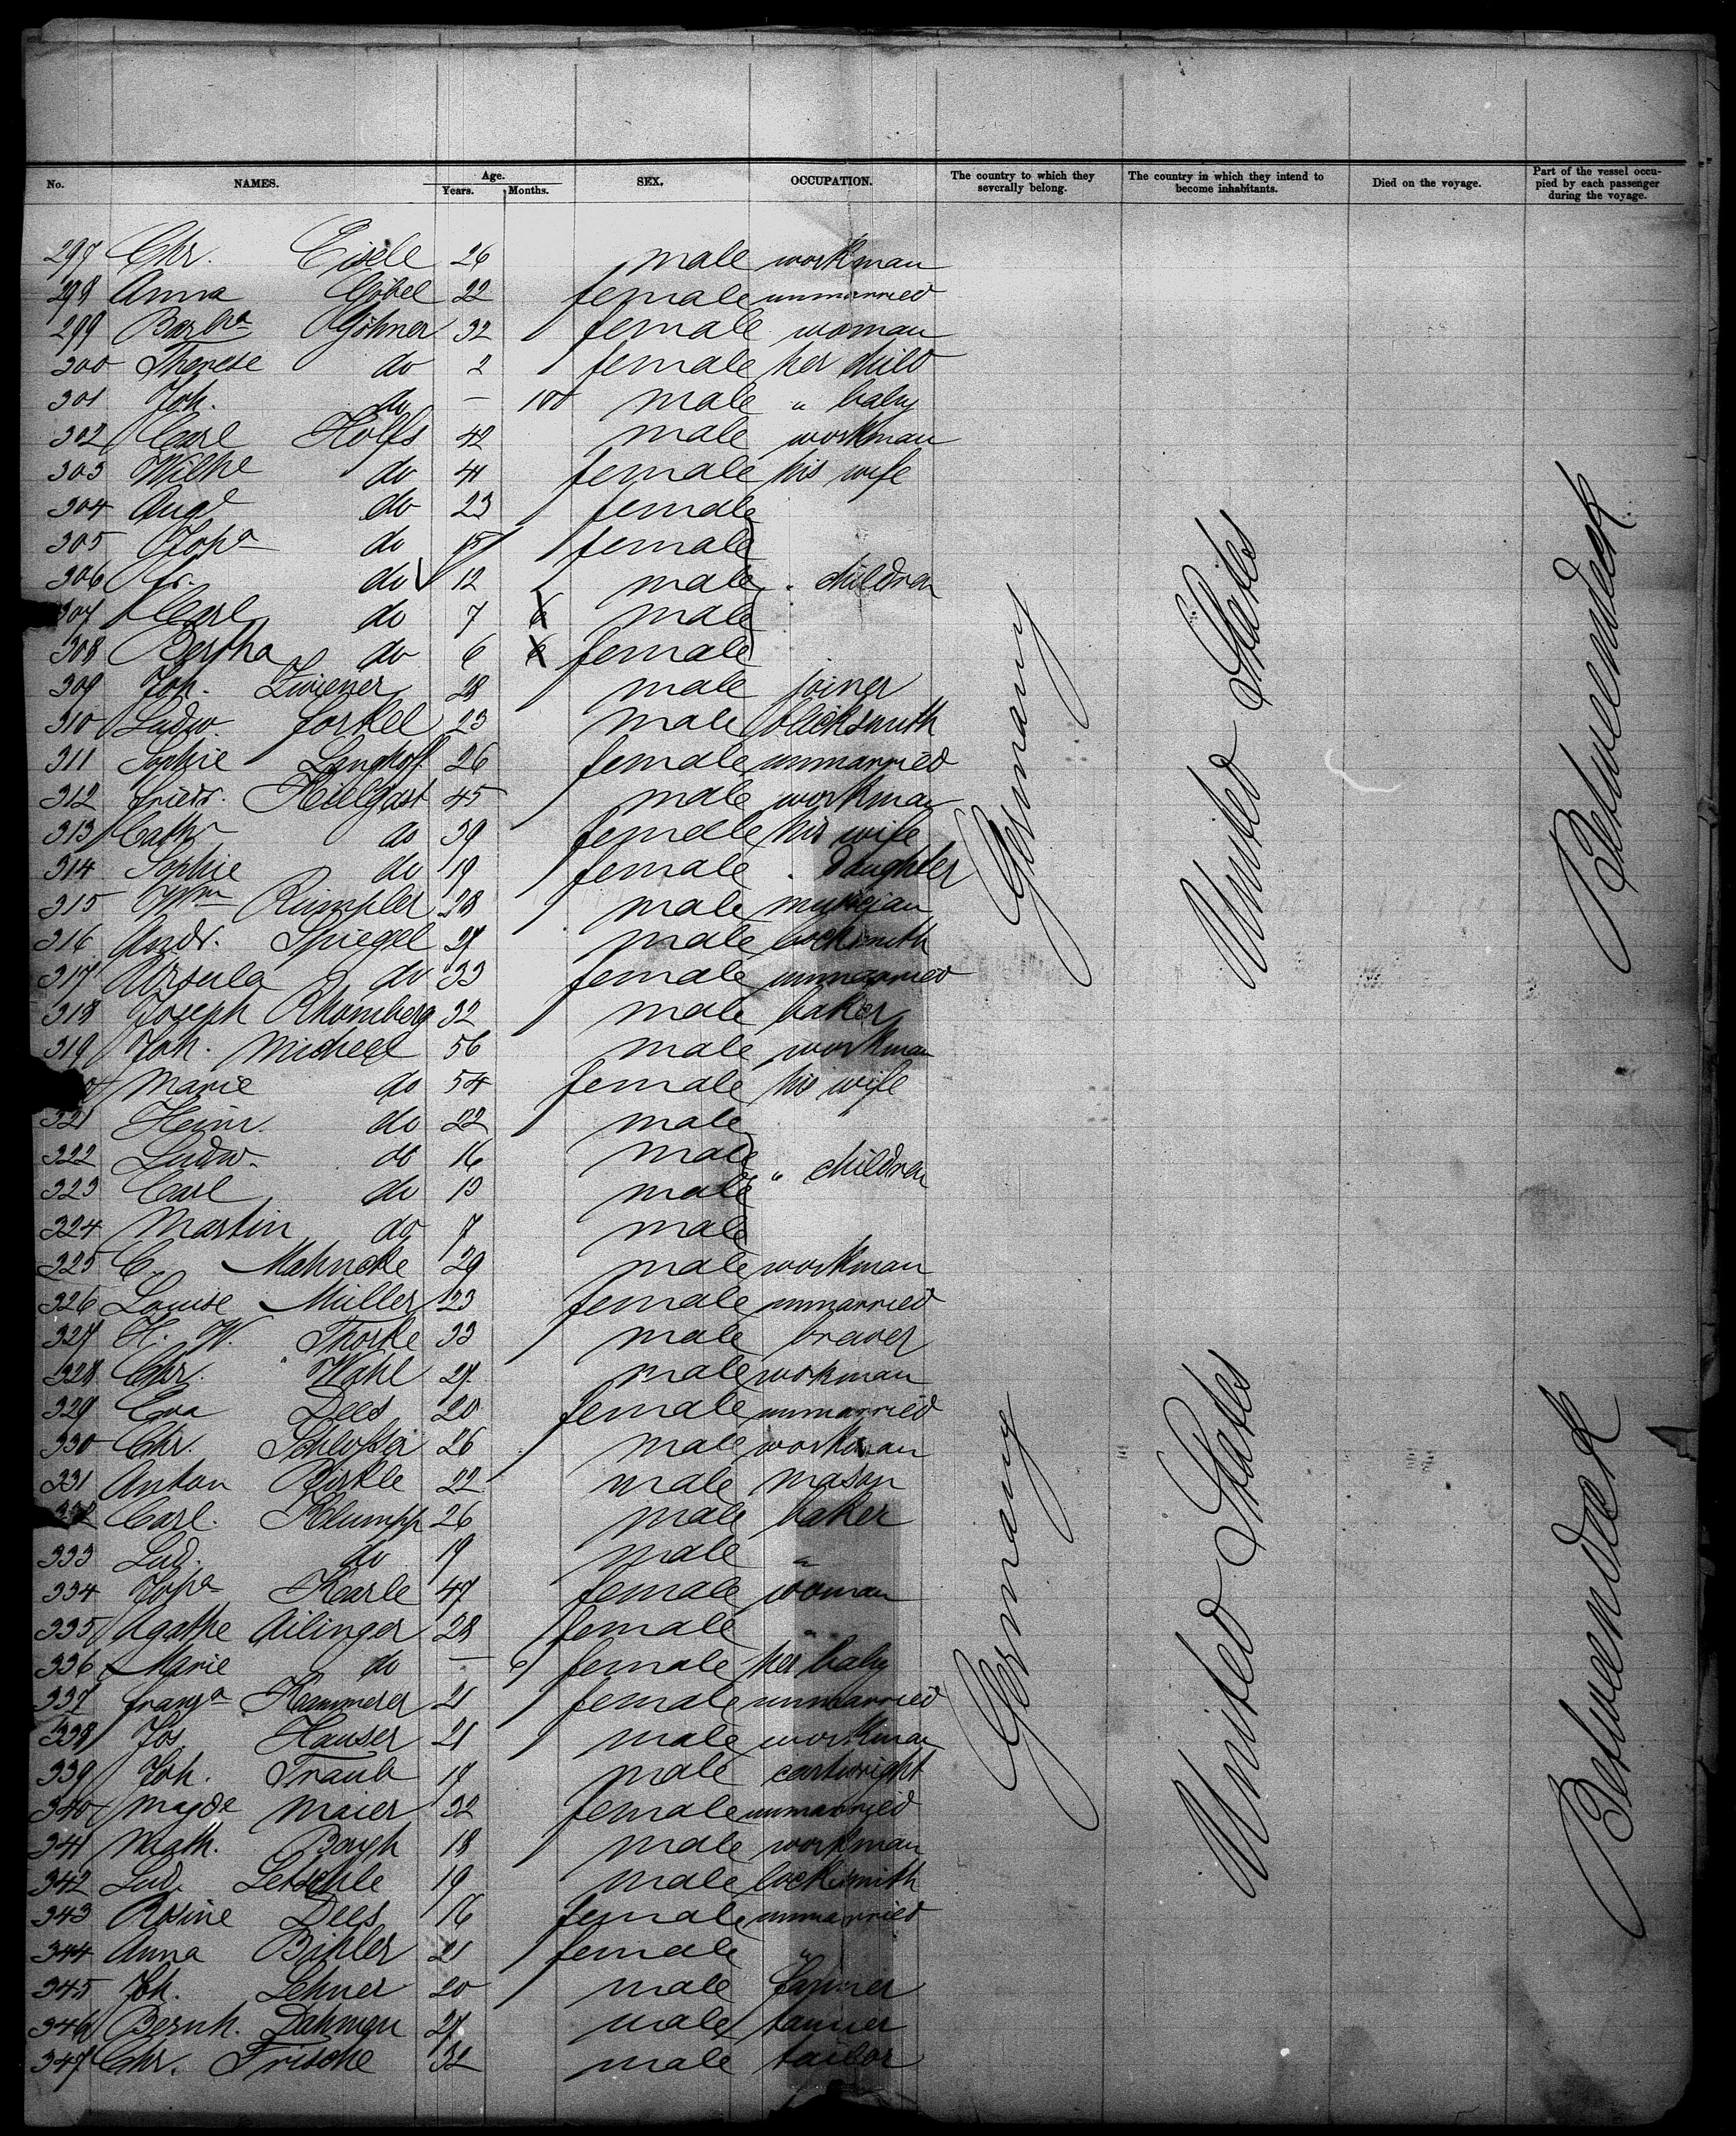 No. NAMES. Age. Years. Months. SEX. OCCUPATION. The country to which they severally belong. The country in which they intend to become inhabitants. Died on the voyage. Part of the vessel occupied by each passenger during the voyage.
297 Chr. Eisele 26 male workman
298 Anna Göbel 22 female unmarried
299 Barbra Göhner 32 female woman
300 Therese do 2 female her child
301 Joh. do — 10 male " baby
302 Carl Holfs 42 male workman
303 Wilhe do 41 female his wife
304 Auge do 23 female
305 Jopa do 15 female
306 Fr. do 12 male " children
307 Carl do 7 male
308 Bertha do 6 female
309 Joh. Zwiener 28 male joiner
310 Ludw. Forkel 23 male blicksmith
311 Sophie Langhoff 26 female unmarried
312 Friedr. Kielgast 45 male workman
313 Cathr do 39 female his wife
314 Sophie do 19 female " daughter
315 Wm Rümpler 28 male musician
316 Andr. Spiegel 27 male locksmith
317 Ursula do 33 female unmarried
318 Joseph Rhomberg 32 male baker
319 Joh. Micheel 56 male workman
Marie do 54 female his wife
321 Heinr. do 22 male
322 Ludw. do 16 male
323 Carl do 13 male " children
324 Martin do 7 male
325 C. Mahncke 29 male workman
326 Louise Müller 23 female unmarried
327 H. W. Thorke 33 male brewer
328 Chr. Wahl 27 male workman
329 Eva Dees 20 female unmarried
330 Chr. Schlosser 26 male workman
331 Anton Birkle 22 male mason
332 Carl. Klumpp 26 male baker
333 Lud. do 19 male "
334 Jopa Karle 47 female woman
335 Agathe Ailinger 28 female "
336 Marie do — 6 female her baby
337 Franza Kammerer 21 female unmarried
338 Jos. Hauser 21 male workman
339 Joh. Traub 17 male cartwright
340 Magde Maier 32 female unmarried
341 Math. 18 male workman
342 Lud. Letschle 19 male locksmith
343 Rosine Dees 16 female unmarried
344 Anna Bihler 21 female "
345 Joh. Lehner 20 male farmer
346 Bernh. Dahmen 27 male tanner
347 Chr. Frische 32 male tailor
Germany
United States
Betweendeck
Germany
United States
Betweendeck